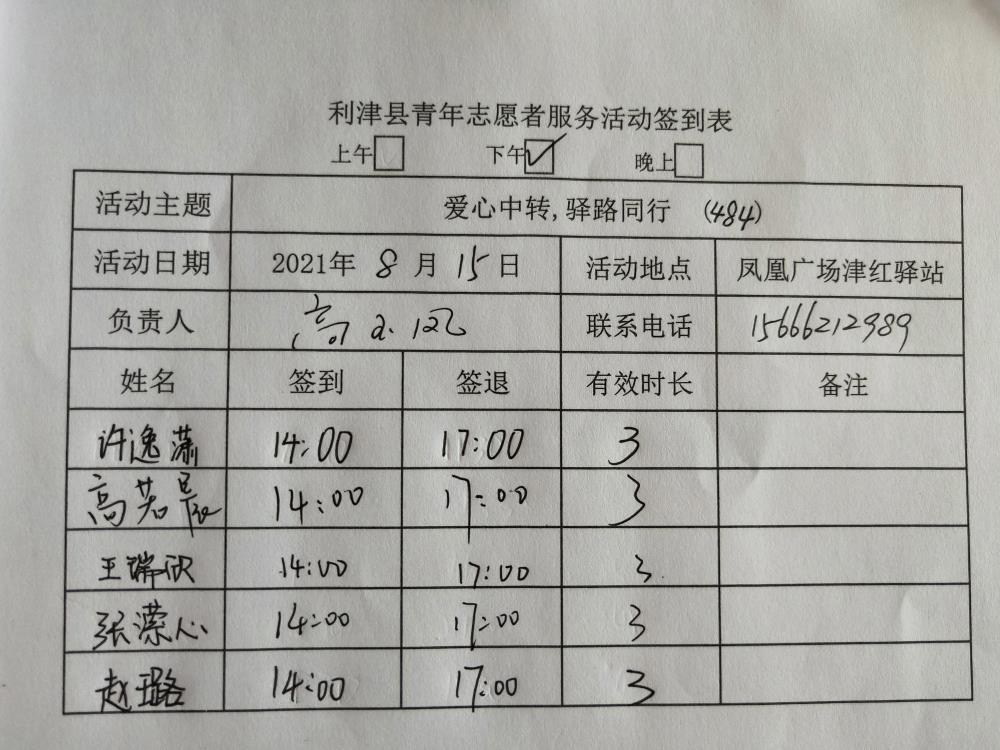 利津县青年志愿者服务活动签到表
上午 下午 ✓ 晚上
活动主题 爱心中转,驿路同行 (484)
活动日期 2021年 8 月 15 日 活动地点 凤凰广场津红驿站
负责人 高 联系电话 15666212989
姓名 签到 签退 有效时长 备注
许逸潇 14:00 17:00 3
高若晨 14:00 17:00 3
王瑞欣 14:00 17:00 3
张潆心 14:00 17:00 3
赵璐 14:00 17:00 3